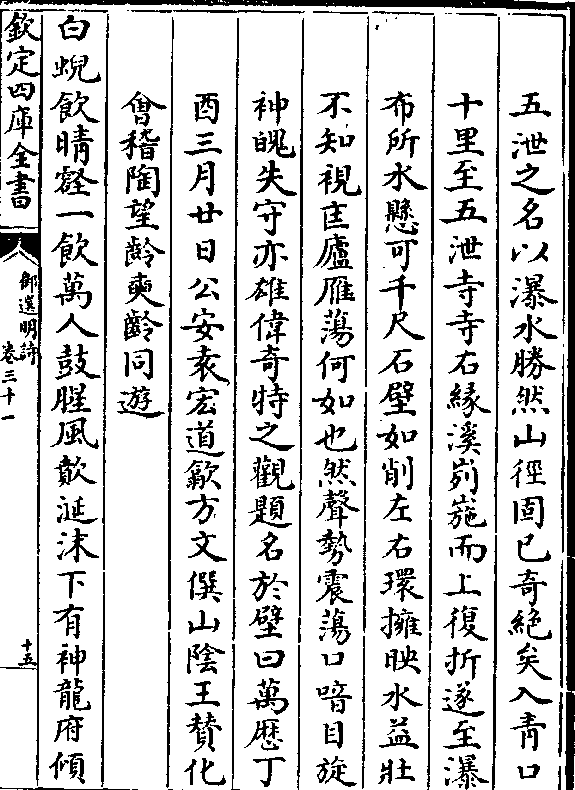 五泄之名以瀑水勝然山徑固已奇絶矣入青口
十里至五泄寺寺右縁溪峛崺而上復折遂至瀑
布所水懸可千尺石壁如削左右環擁映水益壯
不知視匡廬雁蕩何如也然聲勢震蕩口喑目旋
神魄失守亦雄偉奇特之觀題名於壁曰萬歴丁
酉三月廿日公安袁宏道歙方文僎山陰王賛化
㑹稽陶望齡奭齡同遊
白蜺飲晴壑一飲萬人鼓腥風歕涎沫下有神龍府傾
欽定四庫全書
御選明詩
卷三十一
十五